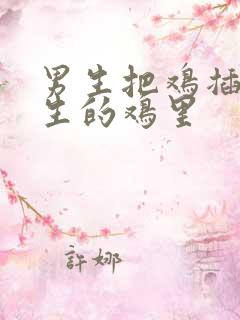 男生把鸡插
生的鸡里
許娜